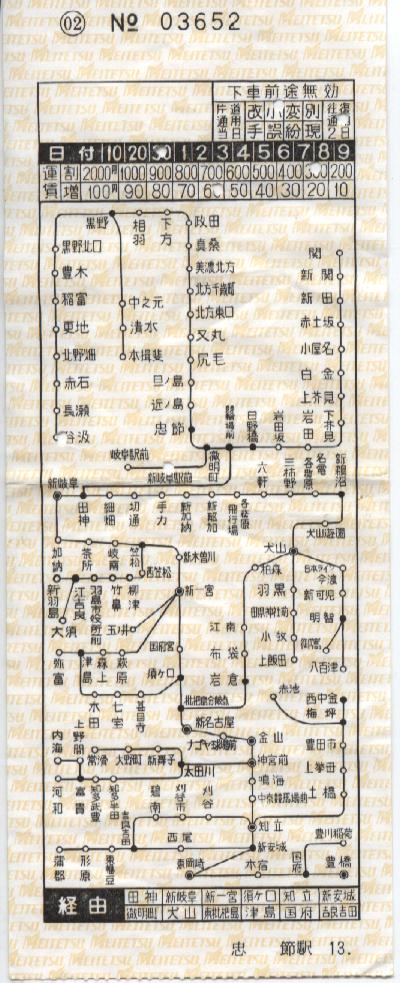 02 № 03652
下車前途無効
片道 改 小 変 別 往復
通用 
当日 手 誤 紛 現 2日
日付 10 20 30 1 2 3 4 5 6 7 8 9
運 割 2000円 1000 900 800 700 600 500 400 300 200
賃 増 100円 90 80 70 60 50 40 30 20 10
黒野
相羽
下方
政田
真桑
美濃北方
北方千歳町
北方東口
又丸
尻毛
旦ノ島
近ノ島
忠節
黒野北口
豊木
稲富
更地
北野畑
赤石
長瀬
谷汲
中之元
清水
本揖斐
関
新関
新田
赤土坂
小屋名
白金
上芥見
下芥見
岩田
岩田坂
日野橋
競輪場前
徹明町
岐阜駅前
新岐阜駅前
新岐阜
田神
細畑
切通
手力
新加納
新那加
飛行場
各務原
六軒
三柿野
名電各務原
新鵜沼
犬山遊園
犬山
加納
茶所
岐南
笠松
西笠松
新木曽川
新一宮
新羽島
江吉良
大須
羽島市役所前
竹鼻
柳津
玉ノ井
国府宮
須ヶ口
弥富
津島
森上
萩原
木田
七宝
甚目寺
枇杷島分岐点
柏森
江南
布袋
岩倉
羽黒
田県神社前
小牧
上飯田
日本ライン今渡
新可児
明智
御嵩
八百津
新名古屋
ナゴヤ球場前
金山
神宮前
鳴海
中京競馬場前
知立
新安城
赤池
西中金
梅坪
豊田市
上挙母
土橋
上野間
内海
河和
富貴
知多武豊
知多半田
常滑
大野町
新舞子
太田川
碧南
刈谷市
刈谷
吉良吉田
西尾
蒲郡
形原
東幡豆
東岡崎
本宿
国府
豊川稲荷
豊橋
経由
田神 新岐阜 新一宮 須ヶ口 知立 新安城
徹明町 犬山 東枇杷島 津島 国府 吉良吉田
忠 節駅 13.